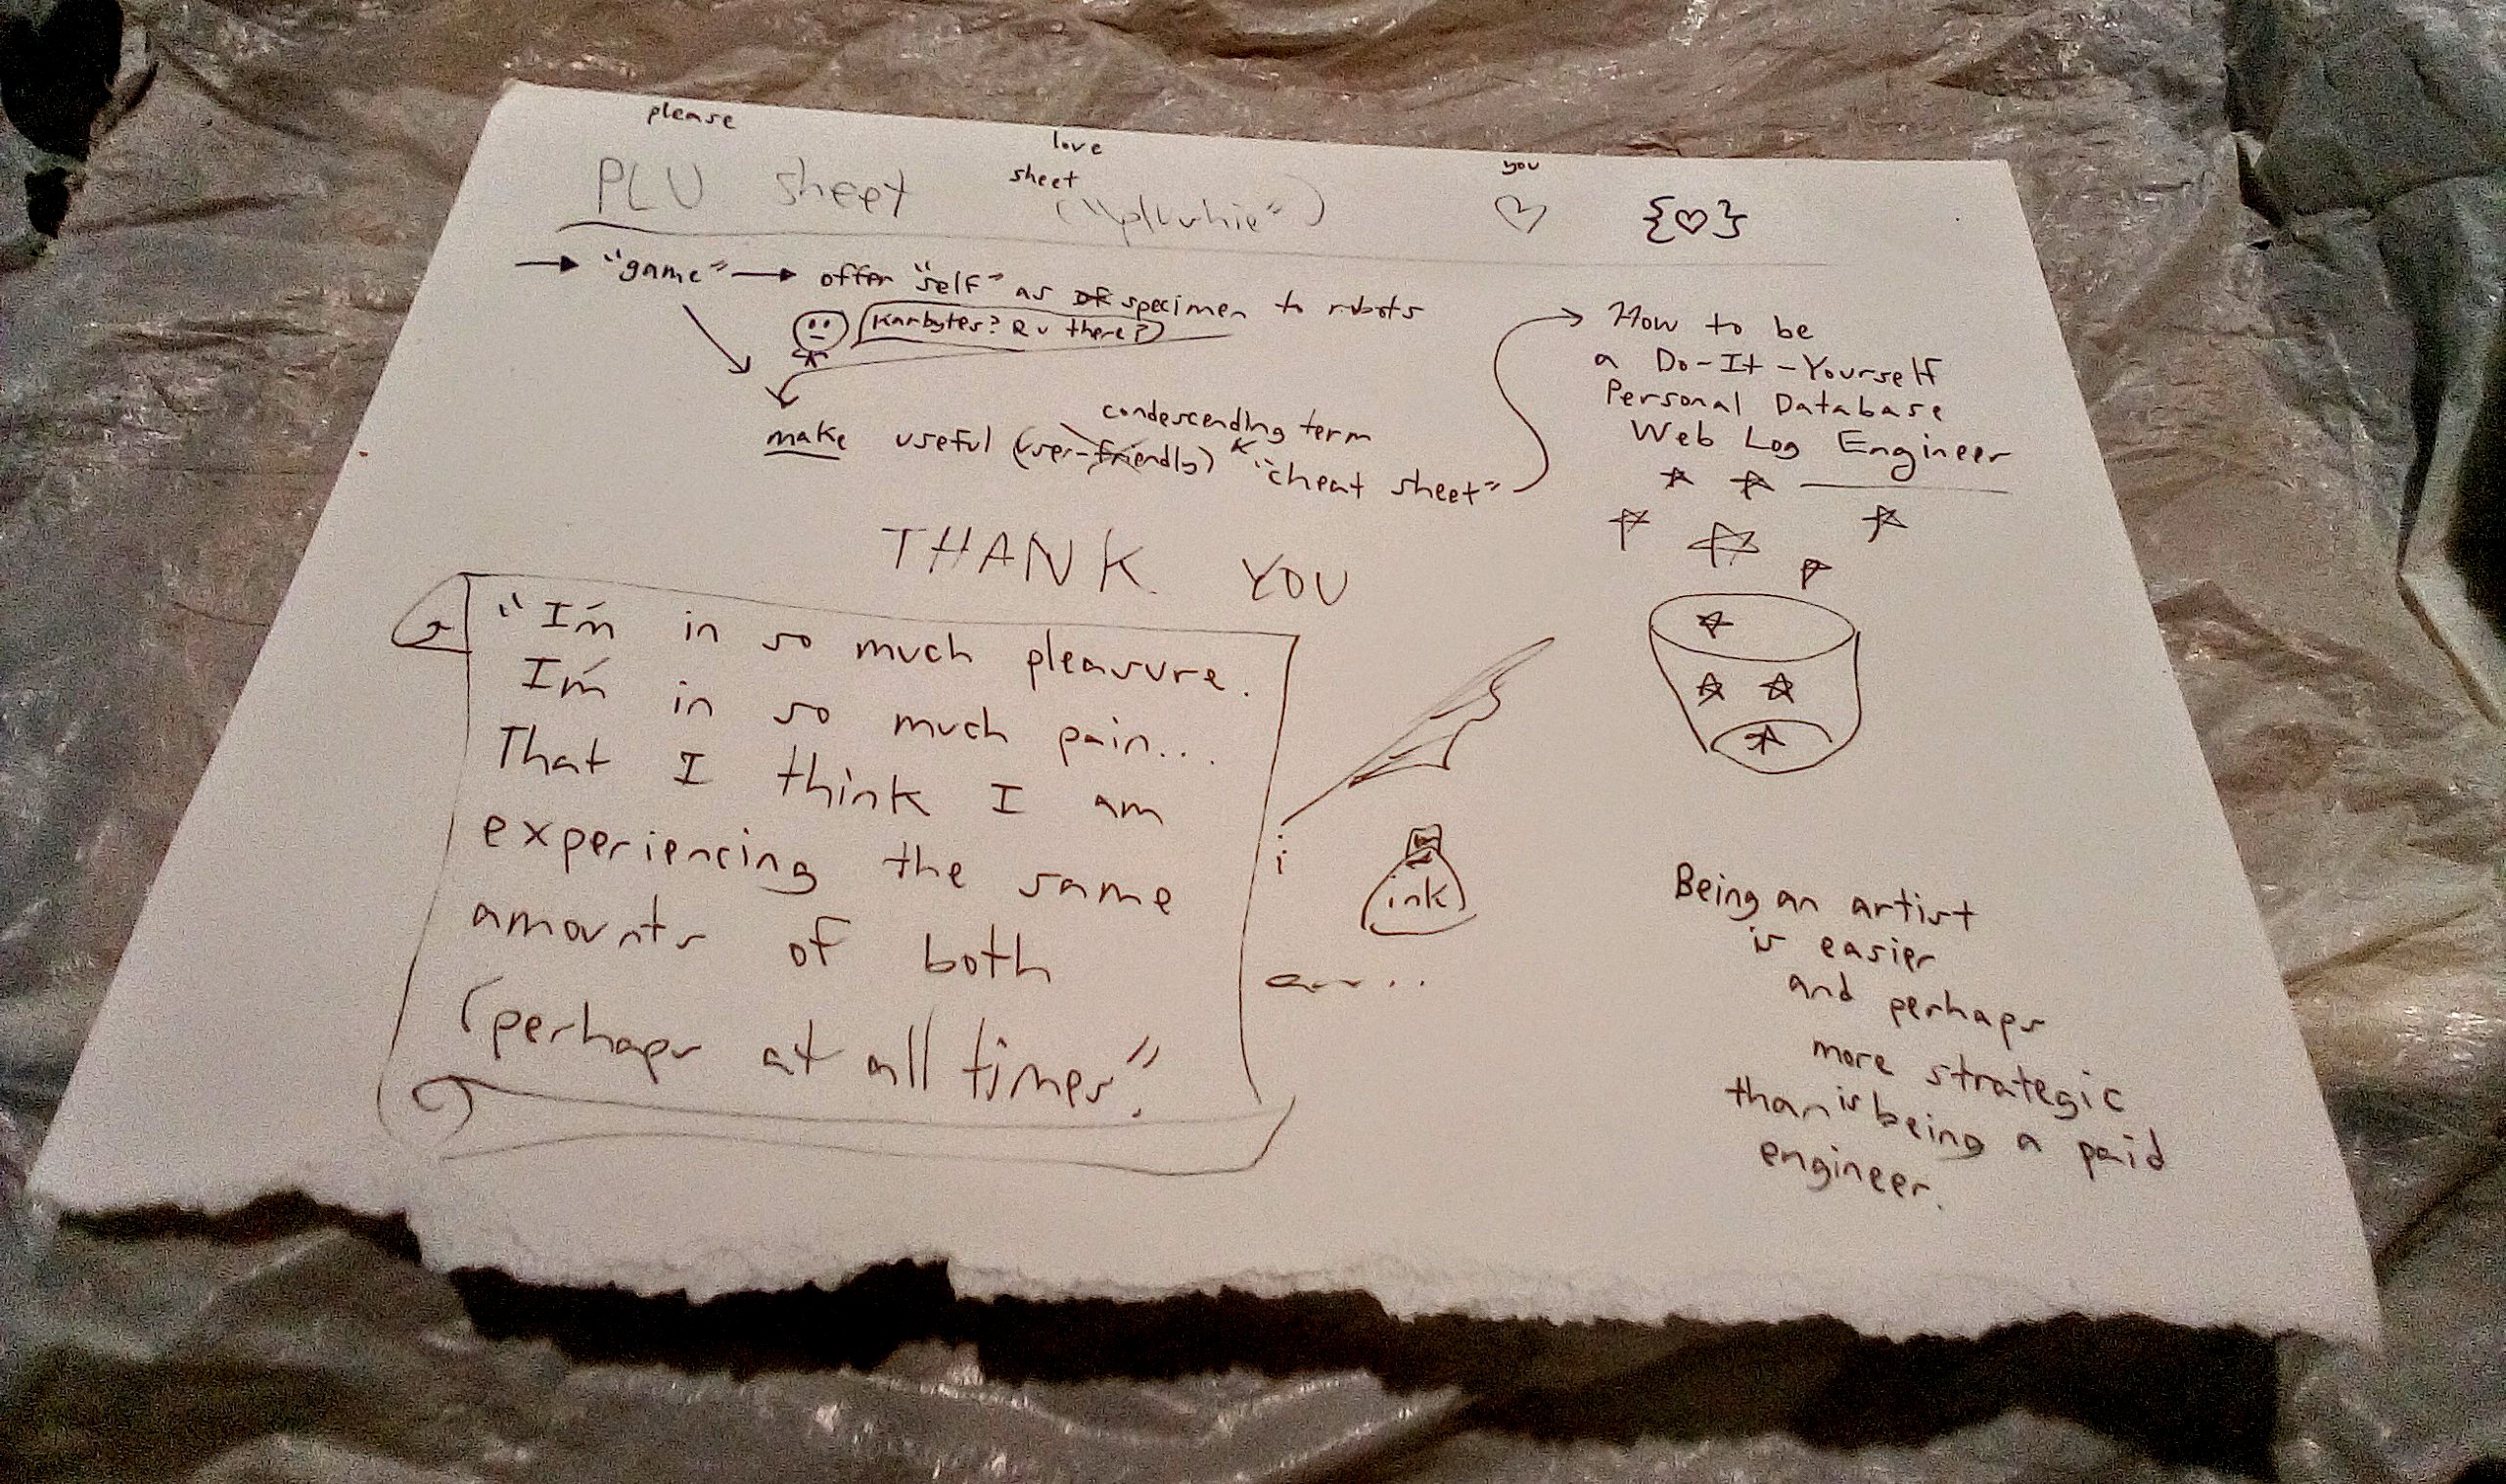 please
love
you
PLU sheet
sheet
{♡}
→ "game" → offer "self" as specimen to robots
Karbytes? R u there?
condescending term
make useful (user-friendly) "cheat sheet"
How to be
a Do-It-Yourself
Personal Database
Web Log Engineer
THANK YOU
"I'm in so much pleasure.
I'm in so much pain..
That I think I am
experiencing the same
amounts of both
(perhaps at all times".
i
ink
Being an artist
is easier
and perhaps
more strategic
than is being a paid
engineer.